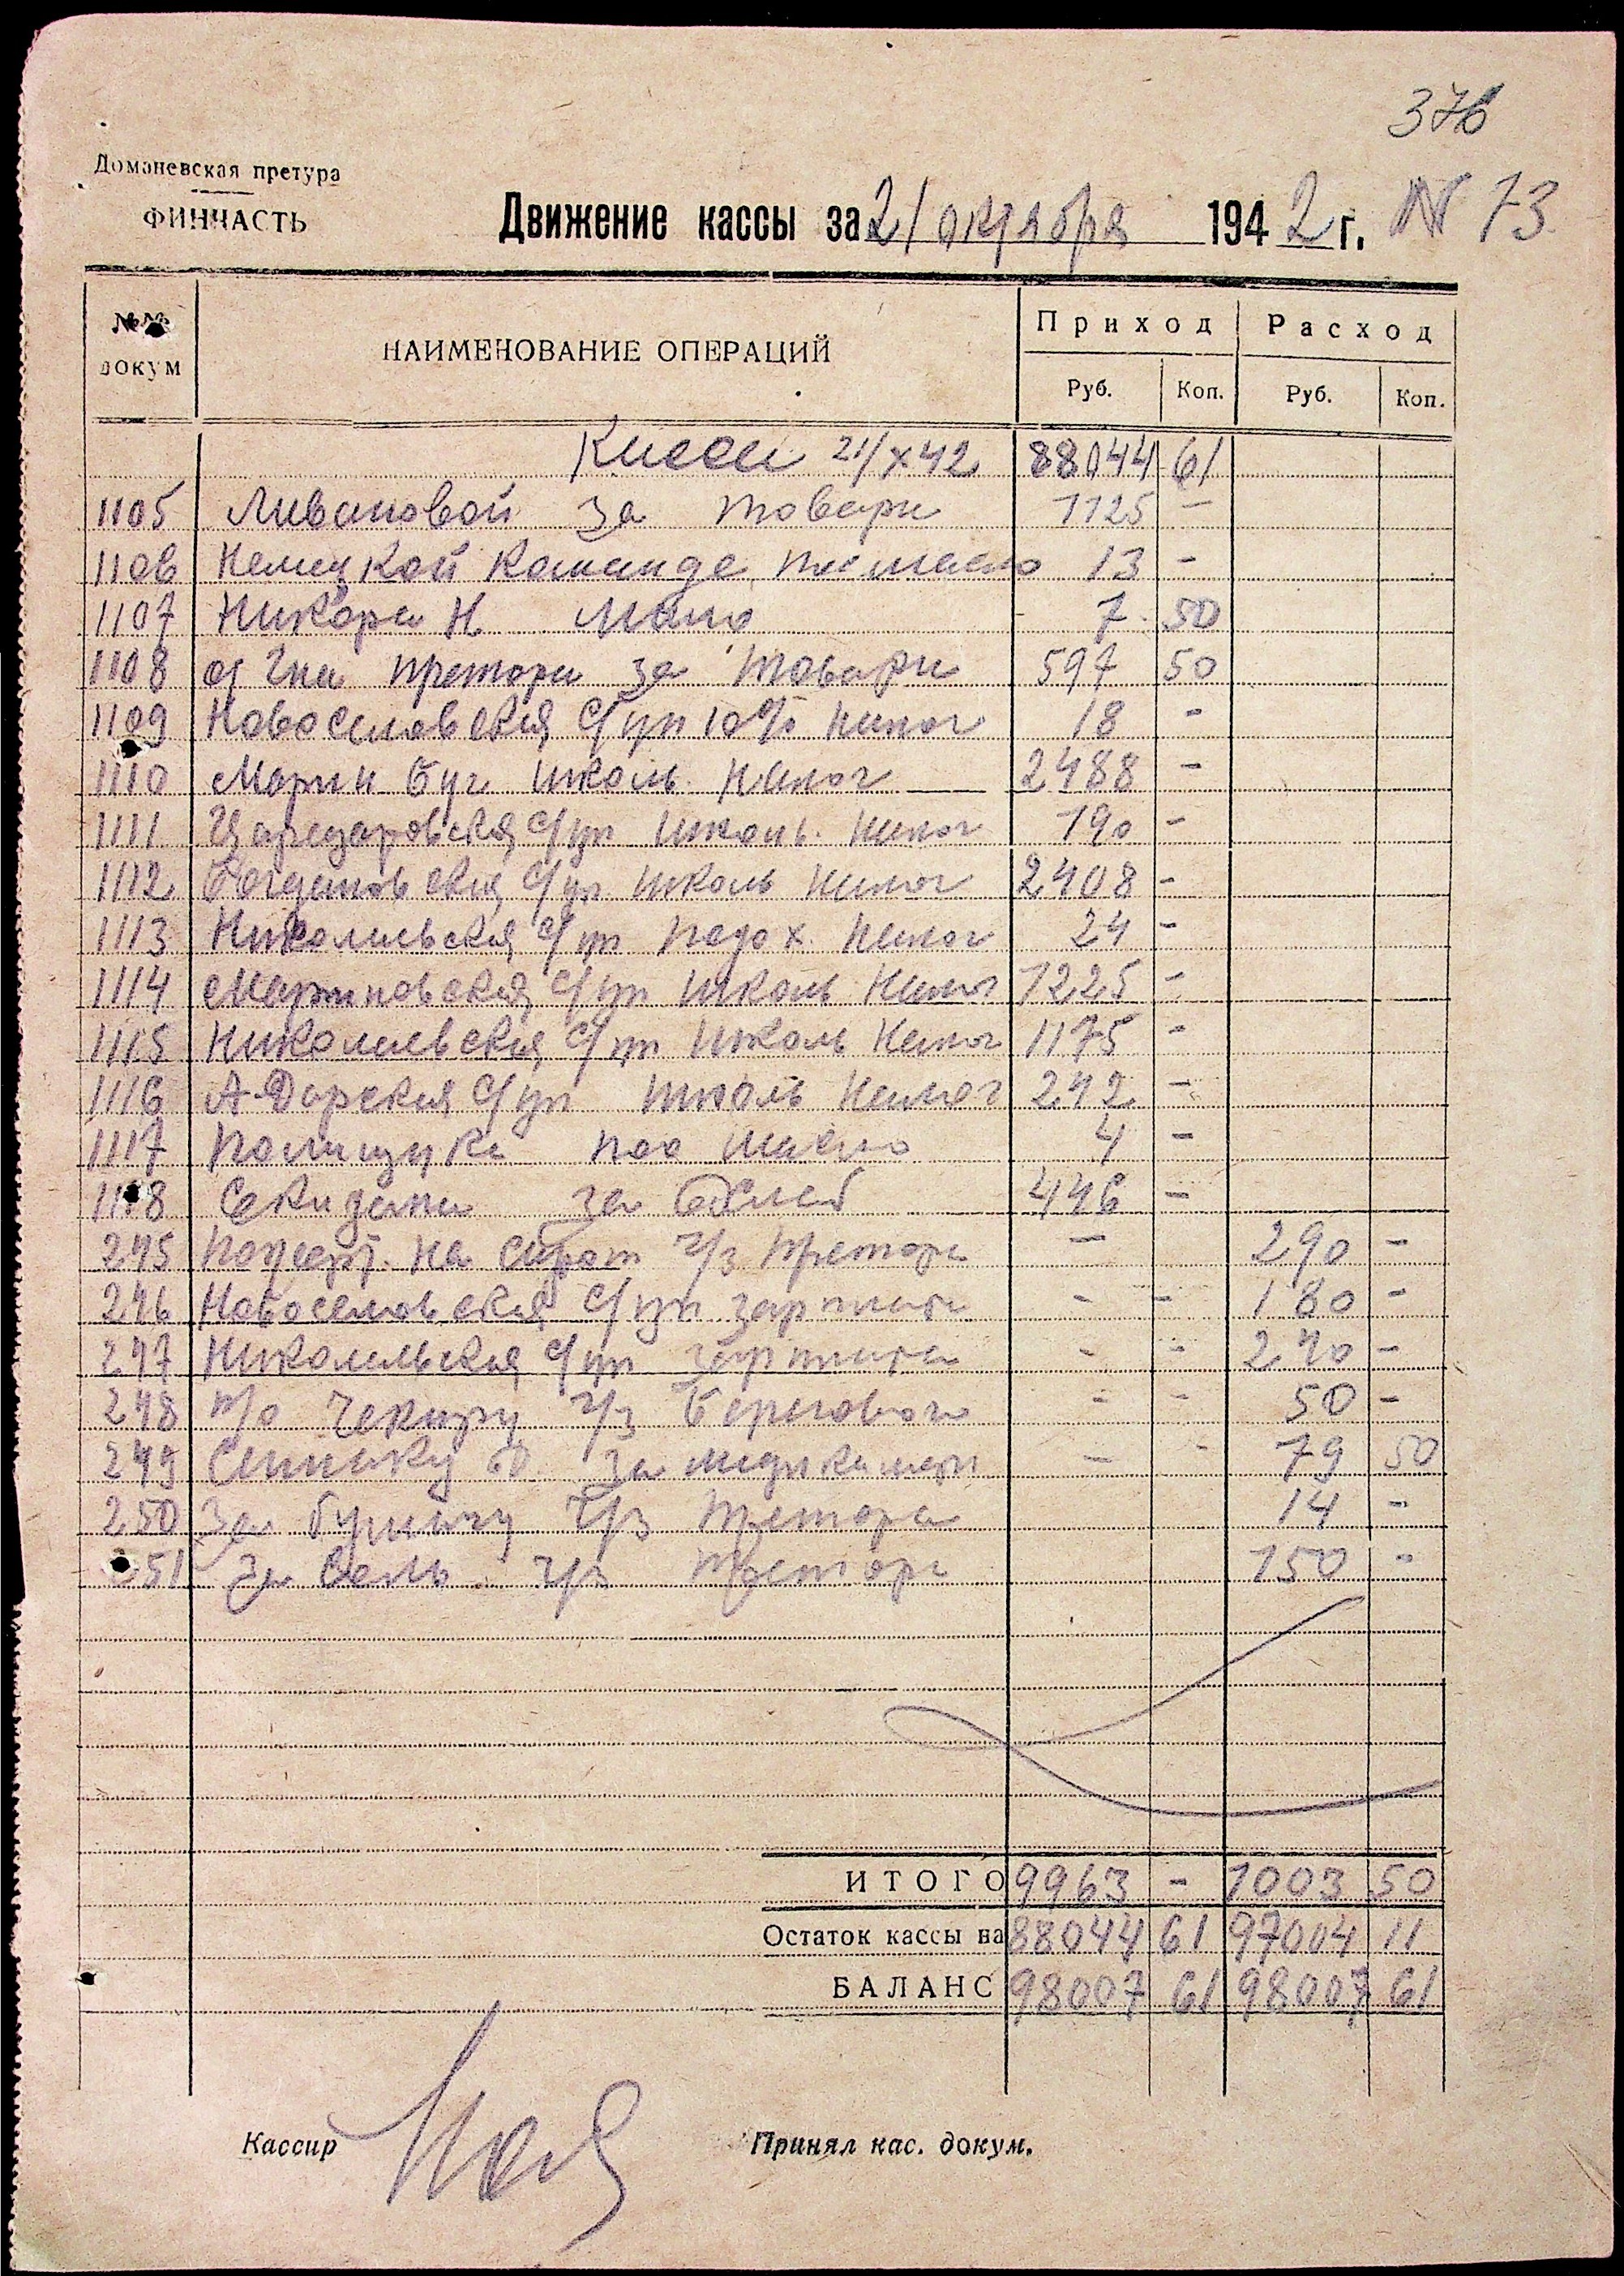 376
Доманевская претура
ФИНЧАСТЬ
Движение кассы за 21 октября 1942 г. № 73
№№ докум НАИМЕНОВАНИЕ ОПЕРАЦИЙ Приход Расход
Руб. Коп. Руб. Коп.
Касса 21/X 42 88044 61
1105 Ливановой за товари 1125 -
1106 Немецкой команде масло 13 -
1107 Никора Н 7 50
1108 претори за товари 597 50
1109 Новоселовская с/уп 10% налог 18 -
1110 Марин школь. налог 2488 -
1111 с/уп школь. налог 190 -
1112 Богдановская с/уп школь налог 2408 -
1113 Николаевская с/уп подох. налог 24 -
1114 Мариновская с/уп школь налог 1225 -
1115 Николаевская с/уп школь налог 1175 -
1116 А-Дарская с/уп школь налог 242 -
1117 Полищука масло 4 -
1118 за хлеб 446 -
245 на сирот ч/з претора - 290 -
246 Новоселовская с/уп зарплата - - 180 -
247 Николаевская с/уп зарплата - - 240 -
248 п/о ч/з Берегового - - 50 -
249 за медикамен - - 79 50
250 За бумагу ч/з претора 14 -
251 За соль ч/з претора 150 -
ИТОГО 9963 - 1003 50
Остаток кассы на 88044 61 97004 11
БАЛАНС 98007 61 98007 61
Кассир Принял кас. докум.